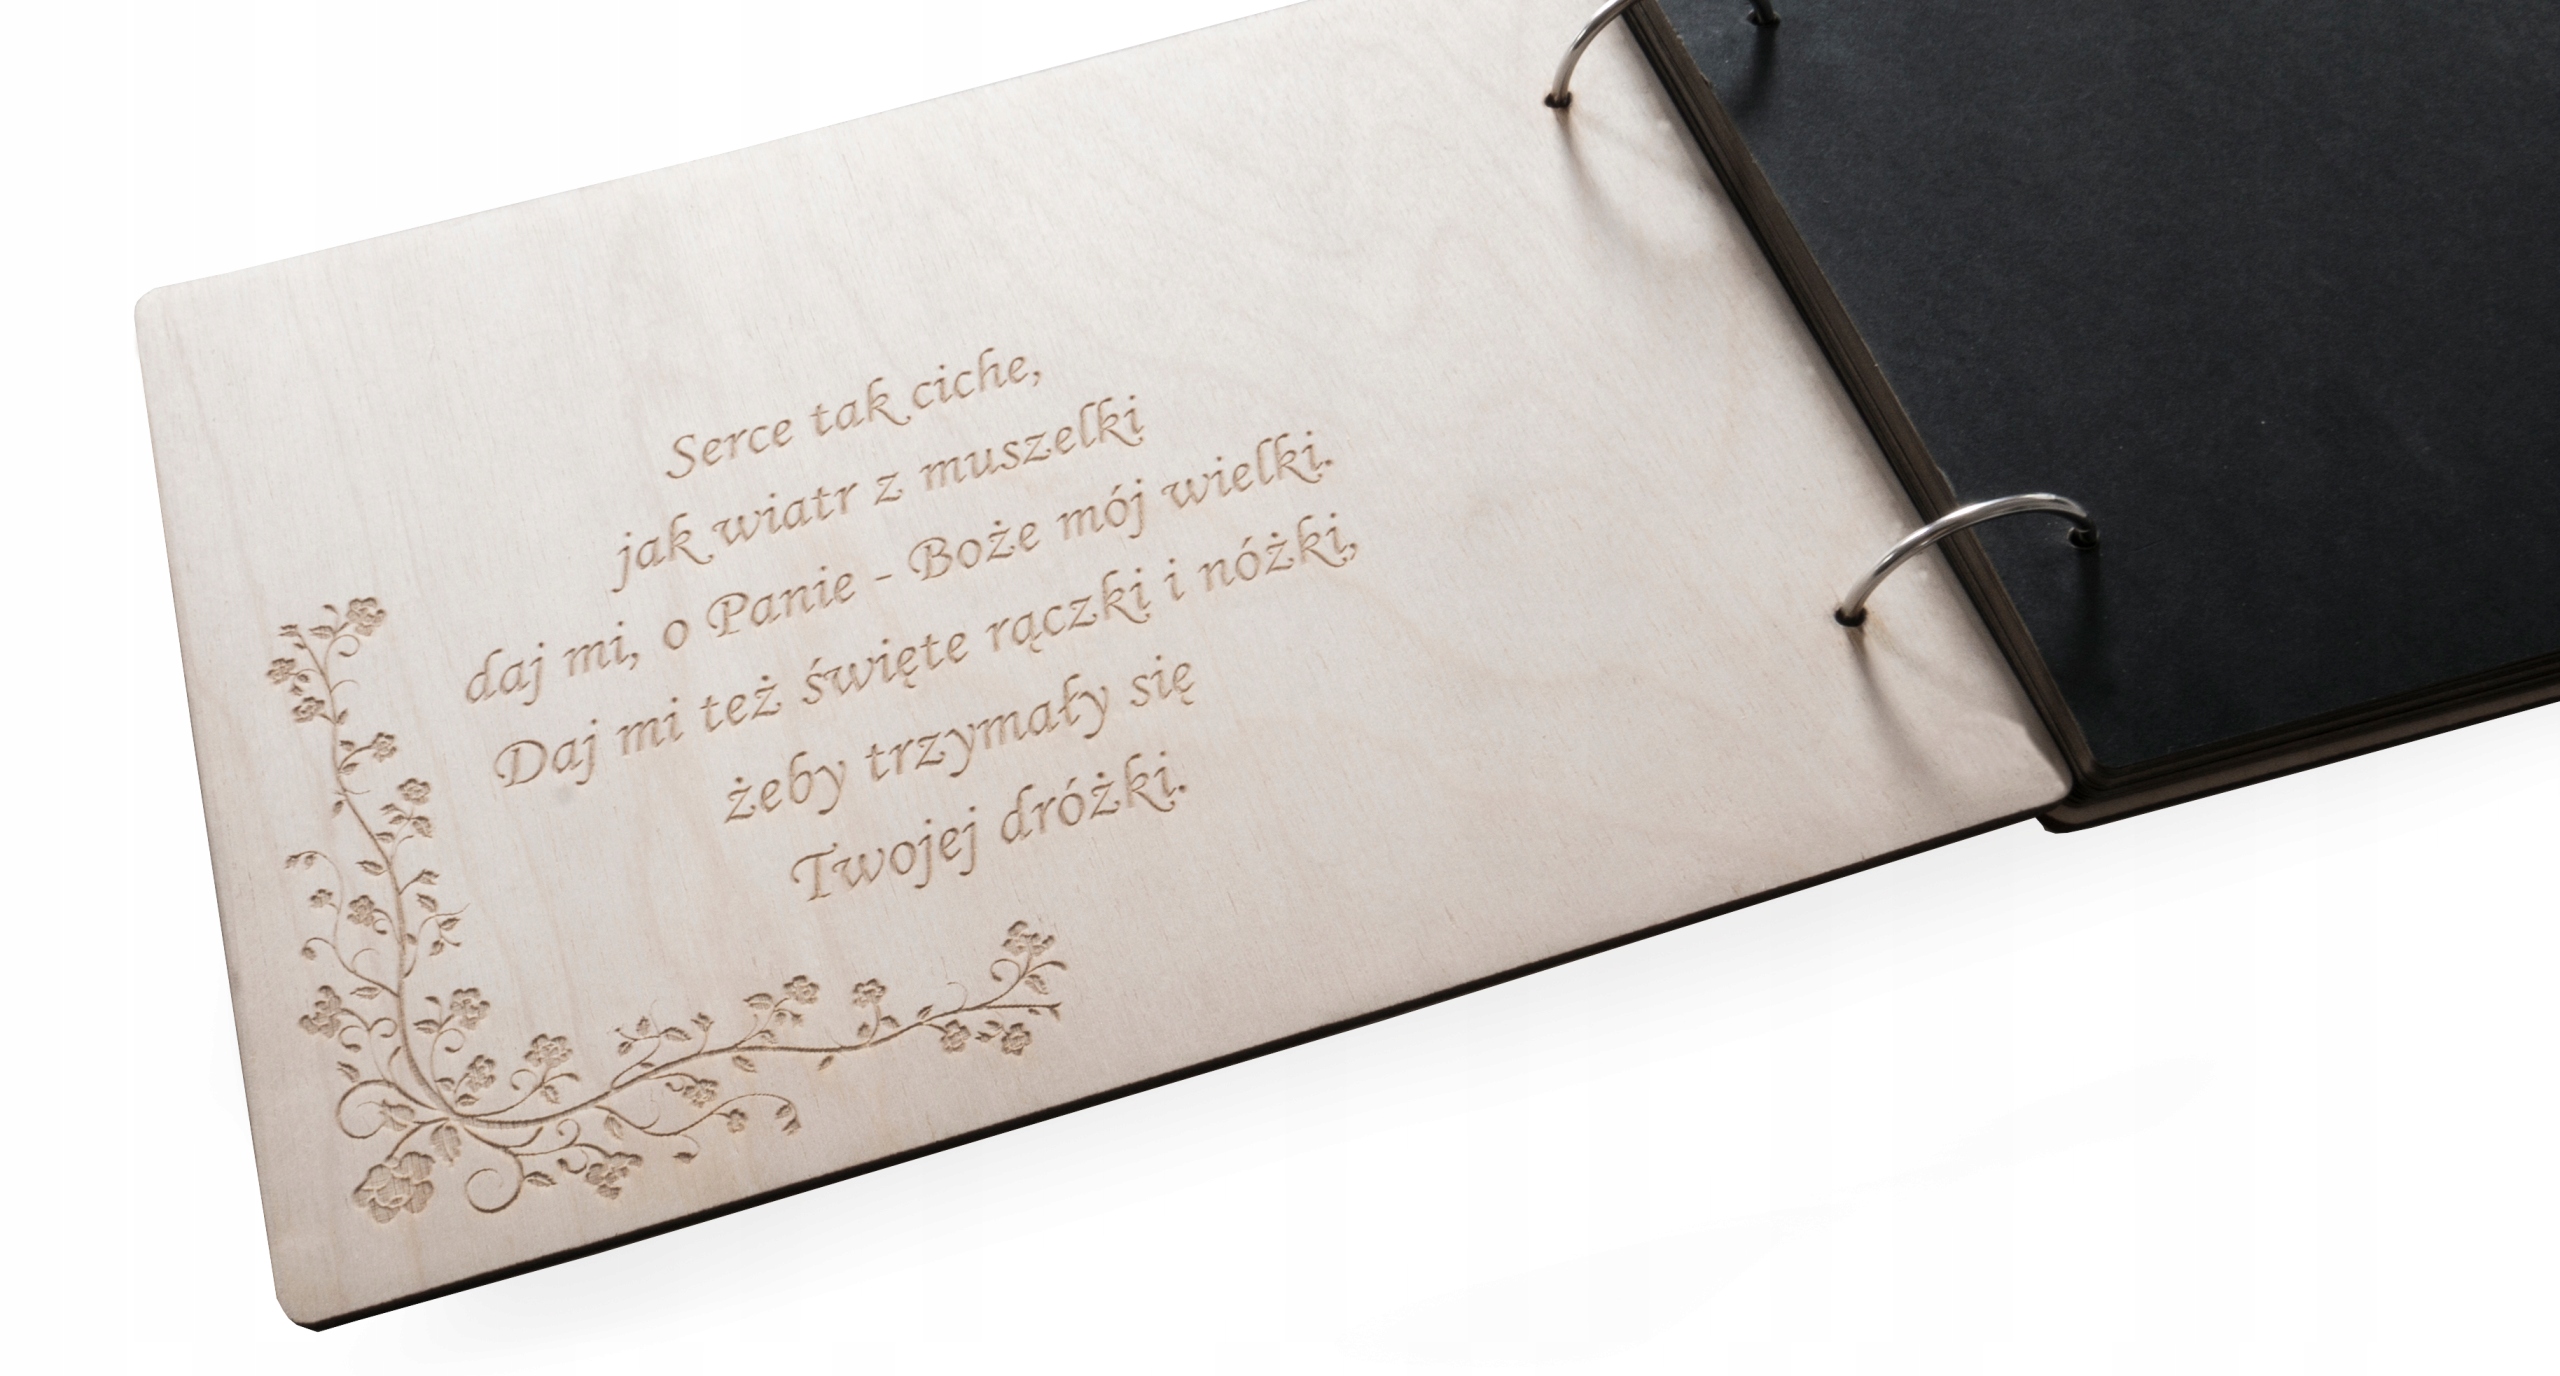 Serce tak ciche,
jak wiatr z muszelki
daj mi, o Panie - Boże mój wielki.
Daj mi też święte rączki i nóżki,
żeby trzymały się
Twojej dróżki.